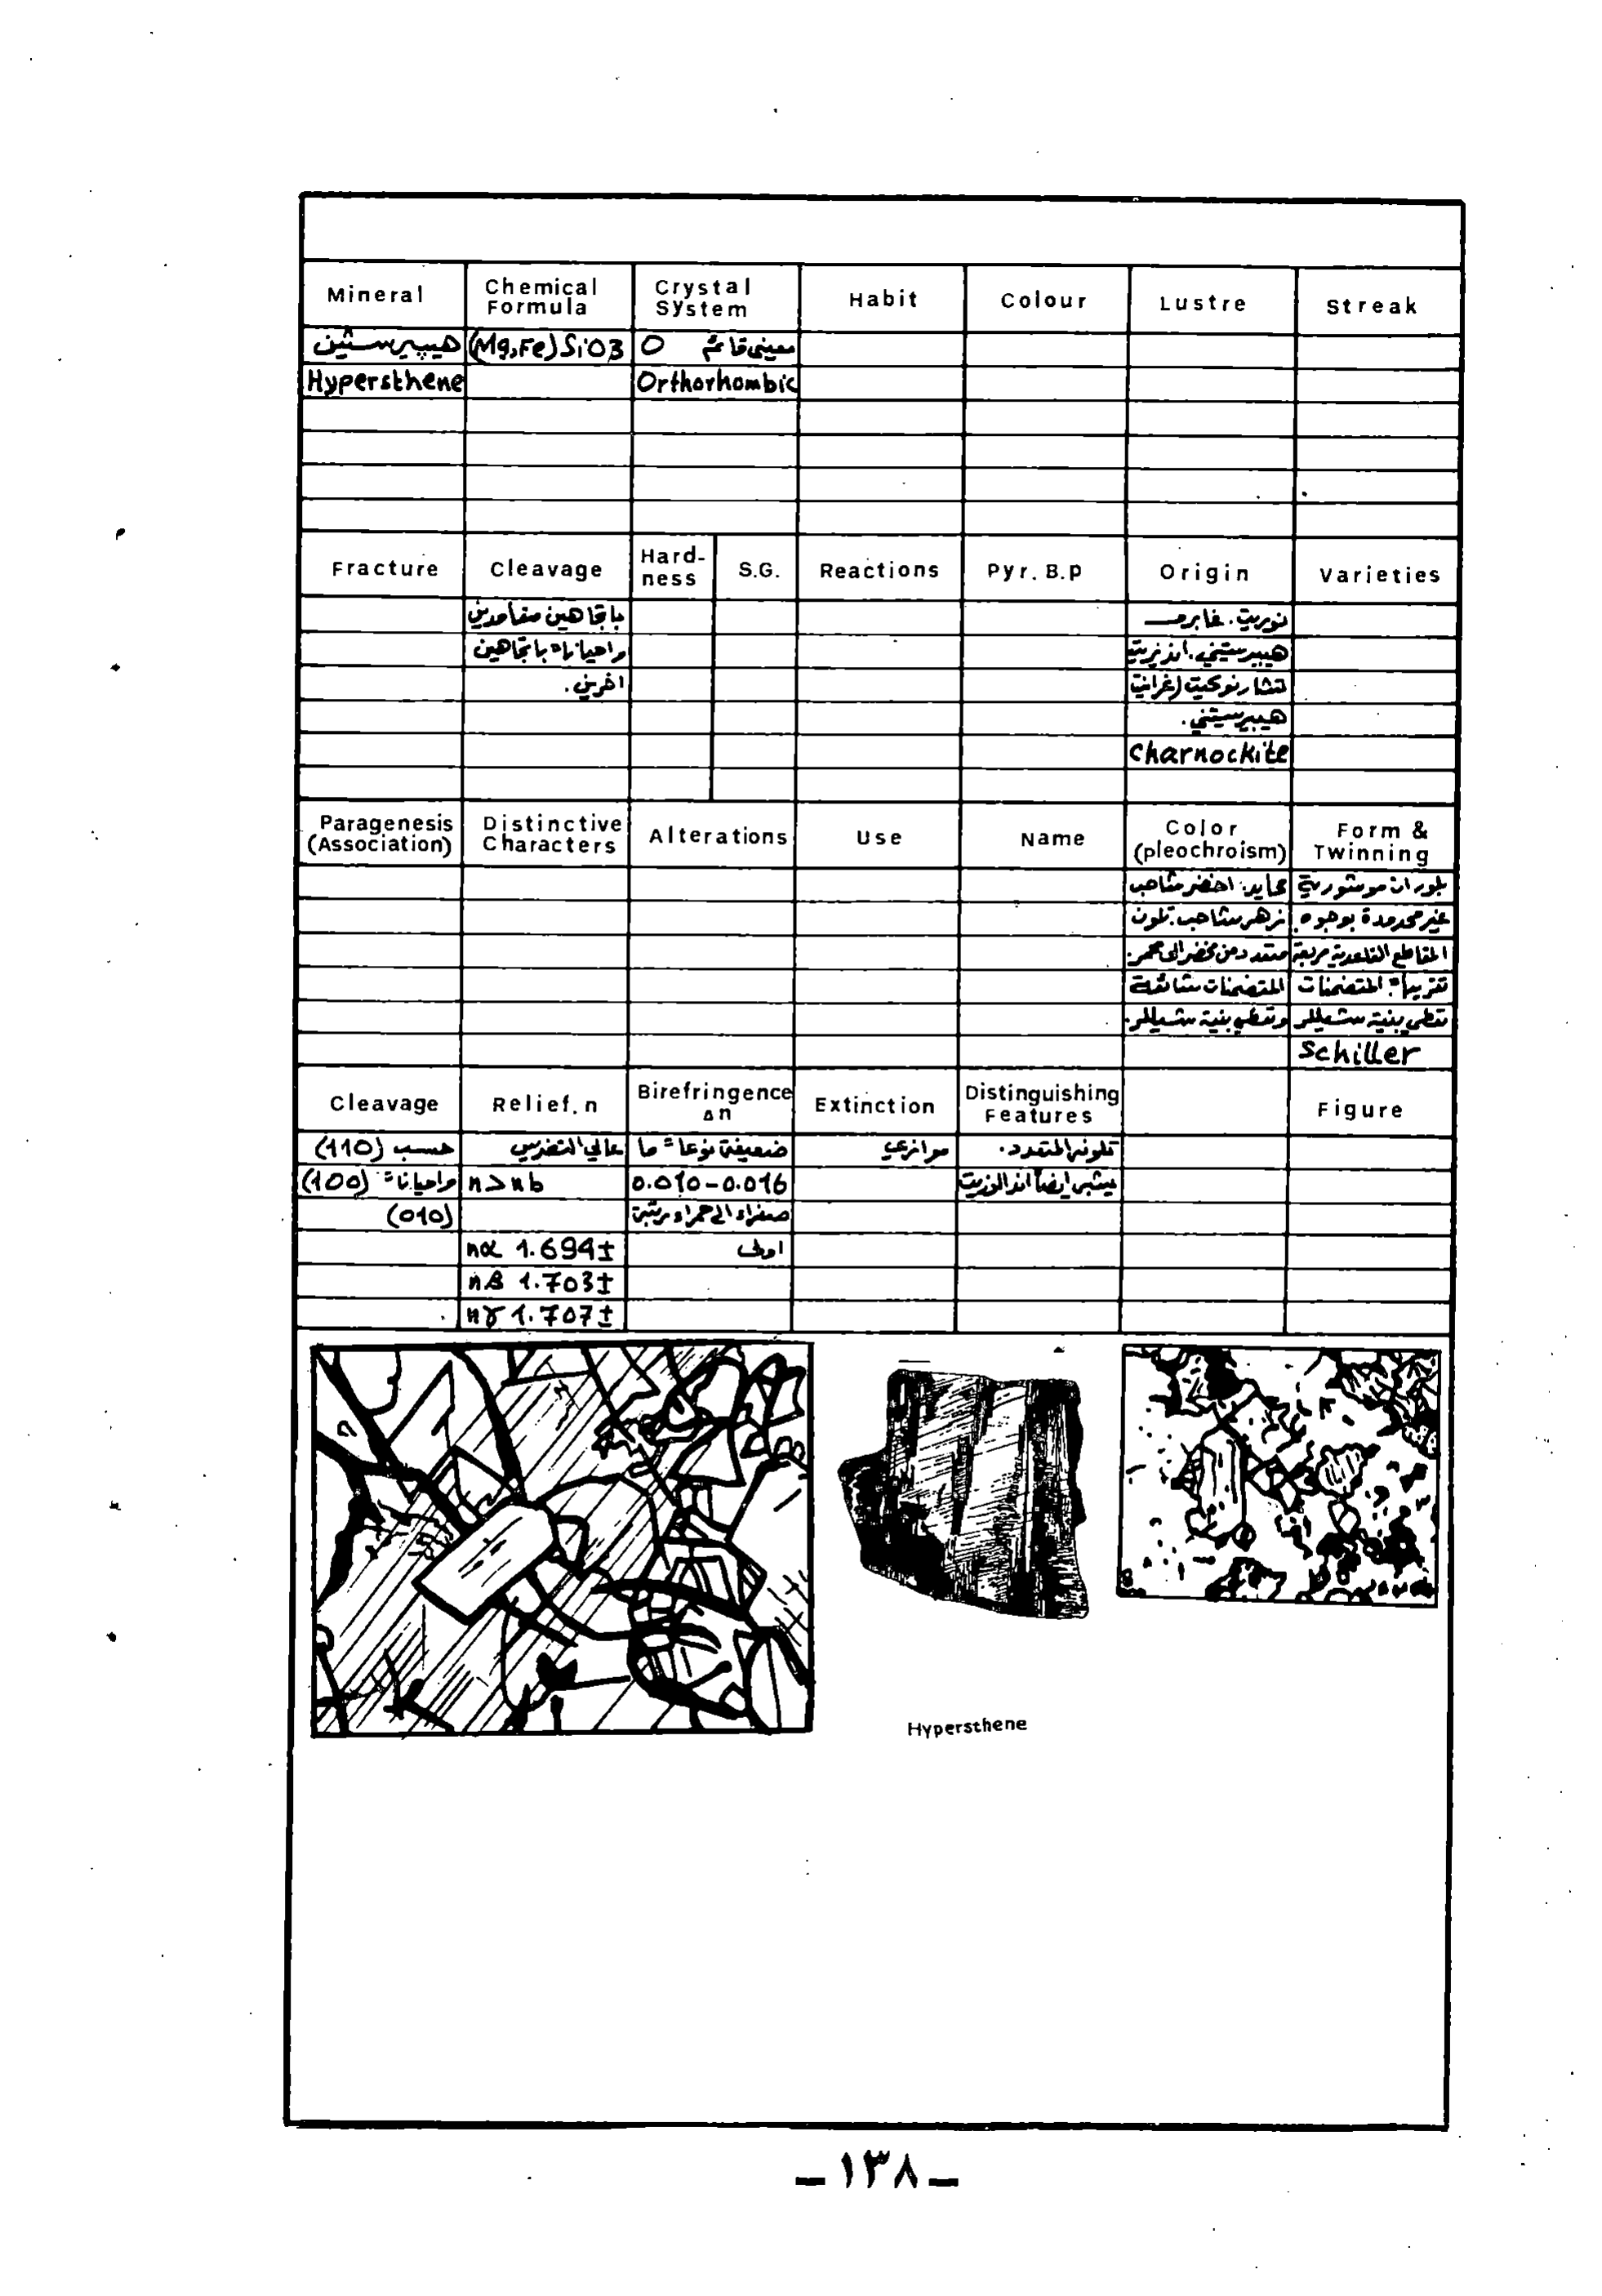 Mineral Chemical Formula Crystal System Habit Colour Lustre Streak
هيپيرستين (Mg,Fe)SiO3 O معيني قائم
Hypersthene Orthorhombic
Fracture Cleavage Hard-ness S.G. Reactions Pyr. B.p Origin Varieties
باتجاهين متعامدين نوريت. غابرو
واحياناً باتجاهين هيبرستيني. اندزيت
اخرين. تشارنوكيت (غرانيت
هيبرستيني.
Charnockite
Paragenesis (Association) Distinctive Characters Alterations Use Name Color (pleochroism) Form & Twinning
عايد: اخضر شاحب بلورات موشورية
زهر شاحب. تلون غير محدودة بوجوه.
متعدد من مخضر الى محمر. المقاطع القاعدية مربعة
المتضمنات شائعة تقريباً. المتضمنات
وتعطي بنية شيللر. تعطي بنية شيللر
Schiller
Cleavage Relief.n Birefringence Δn Extinction Distinguishing Features Figure
حسب (110) عالي التضريس ضعيفة نوعاً ما موازي تلونه المتعدد.
واحياناً (100) n>nb 0.010-0.016 يشبه ايضاً اندالوزيت
(010) صفراء الى حمراء مرتبة
nα 1.694± اولى
nβ 1.703±
nγ 1.707±
Hypersthene
- ١٣٨ -